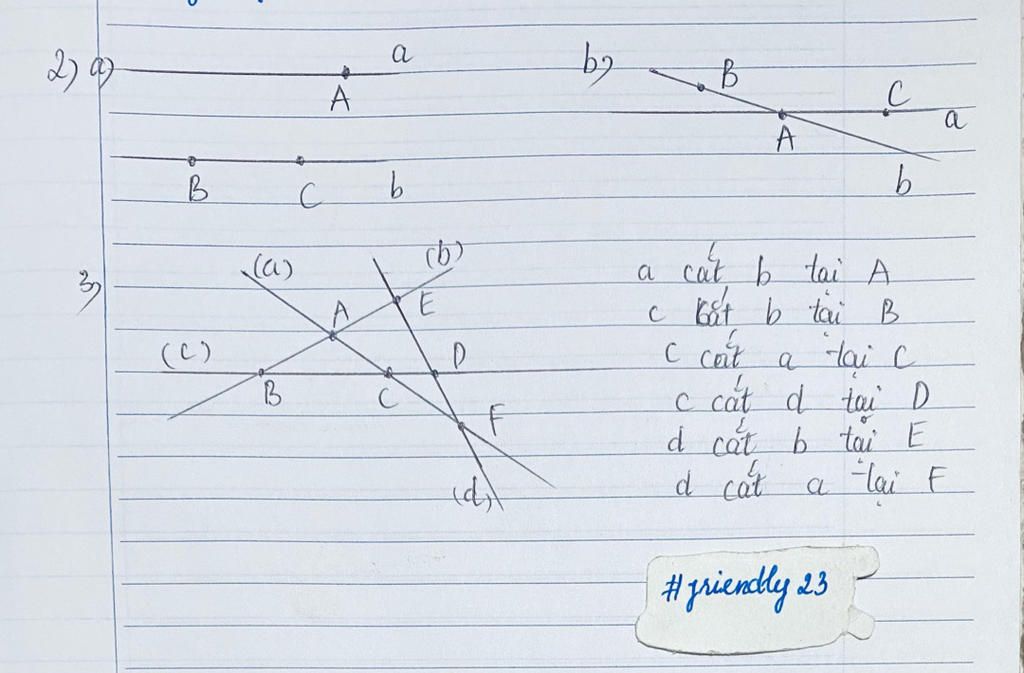 2) a)
a
A
B C b
b)
B
C
A
a
b
3,
(a) (b)
A E
(c) D
B C
F
(d)
a cắt b tại A
c cắt b tại B
c cắt a tại C
c cắt d tại D
d cắt b tại E
d cắt a tại F
#friendly 23